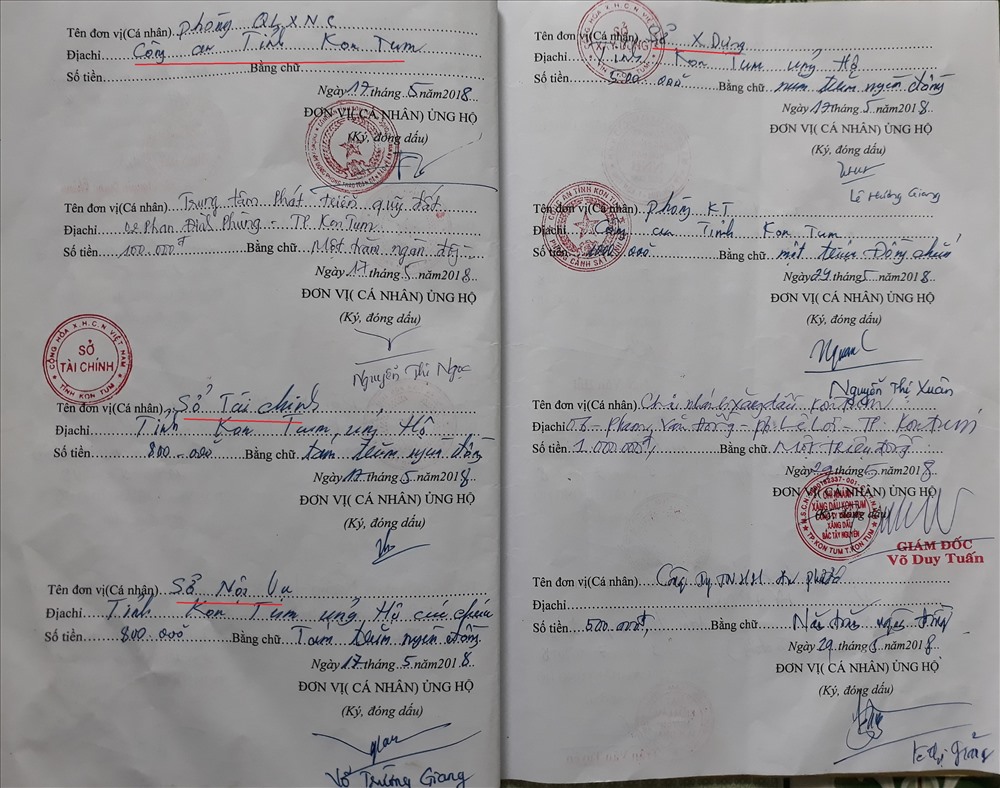 Tên đơn vị(Cá nhân) phòng QLXNC
Địa chỉ Công an Tỉnh Kon Tum
Số tiền Bằng chữ
Ngày 17 tháng 5 năm 2018
ĐƠN VỊ( CÁ NHÂN) ỦNG HỘ
(Ký, đóng dấu)
Tên đơn vị(Cá nhân) Trung tâm Phát triển quỹ đất
Địa chỉ Phan Đình Phùng - TP KonTum
Số tiền 100.000đ Bằng chữ Một trăm ngàn đồng
Ngày 17 tháng 5 năm 2018
ĐƠN VỊ( CÁ NHÂN) ỦNG HỘ
(Ký, đóng dấu)
Nguyễn Thị Ngọc
CỘNG HÒA X.H.C.N VIỆT NAM
SỞ
TÀI CHÍNH
TỈNH KON TUM
Tên đơn vị(Cá nhân) Sở Tài chính
Địa chỉ Tỉnh Kon Tum ủng Hộ
Số tiền 800.000 Bằng chữ tám trăm ngàn đồng
Ngày 17 tháng 5 năm 2018
ĐƠN VỊ( CÁ NHÂN) ỦNG HỘ
(Ký, đóng dấu)
Tên đơn vị(Cá nhân) Sở Nội Vụ
Địa chỉ Tỉnh Kon Tum ủng Hộ
Số tiền 800.000 Bằng chữ Tám trăm ngàn đồng
Ngày 17 tháng 5 năm 2018
ĐƠN VỊ( CÁ NHÂN) ỦNG HỘ
(Ký, đóng dấu)
Võ Trường Giang
Tên đơn vị(Cá nhân) Sở X. Dựng
Địa chỉ Tỉnh Kon Tum ủng Hộ
Số tiền 500.000 Bằng chữ năm trăm ngàn đồng
Ngày 17 tháng 5 năm 2018
ĐƠN VỊ( CÁ NHÂN) ỦNG HỘ
(Ký, đóng dấu)
Lê Hương Giang
Tên đơn vị(Cá nhân) phòng KT
Địa chỉ Công an Tỉnh Kon Tum
Số tiền 1.000.000 Bằng chữ một triệu Đồng chẵn
Ngày 29 tháng 5 năm 2018
ĐƠN VỊ( CÁ NHÂN) ỦNG HỘ
(Ký, đóng dấu)
Nguyễn Thị Xuân
Tên đơn vị(Cá nhân) Chi nhánh xăng dầu Kon Tum
Địa chỉ 06 - Phạm Văn Đồng - p. Lê Lợi - TP. Kon Tum
Số tiền 1.000.000đ Bằng chữ Một triệu đồng
Ngày 29 tháng 5 năm 2018
ĐƠN VỊ( CÁ NHÂN) ỦNG HỘ
(Ký, đóng dấu)
XĂNG DẦU KON TUM
XĂNG DẦU
BẮC TÂY NGUYÊN
TP.KON TUM T.KON TUM
GIÁM ĐỐC
Võ Duy Tuấn
Tên đơn vị(Cá nhân) Công Ty TNHH
Địa chỉ
Số tiền 500.000đ Bằng chữ Năm trăm ngàn đồng
Ngày 29 tháng 5 năm 2018
ĐƠN VỊ( CÁ NHÂN) ỦNG HỘ
(Ký, đóng dấu)